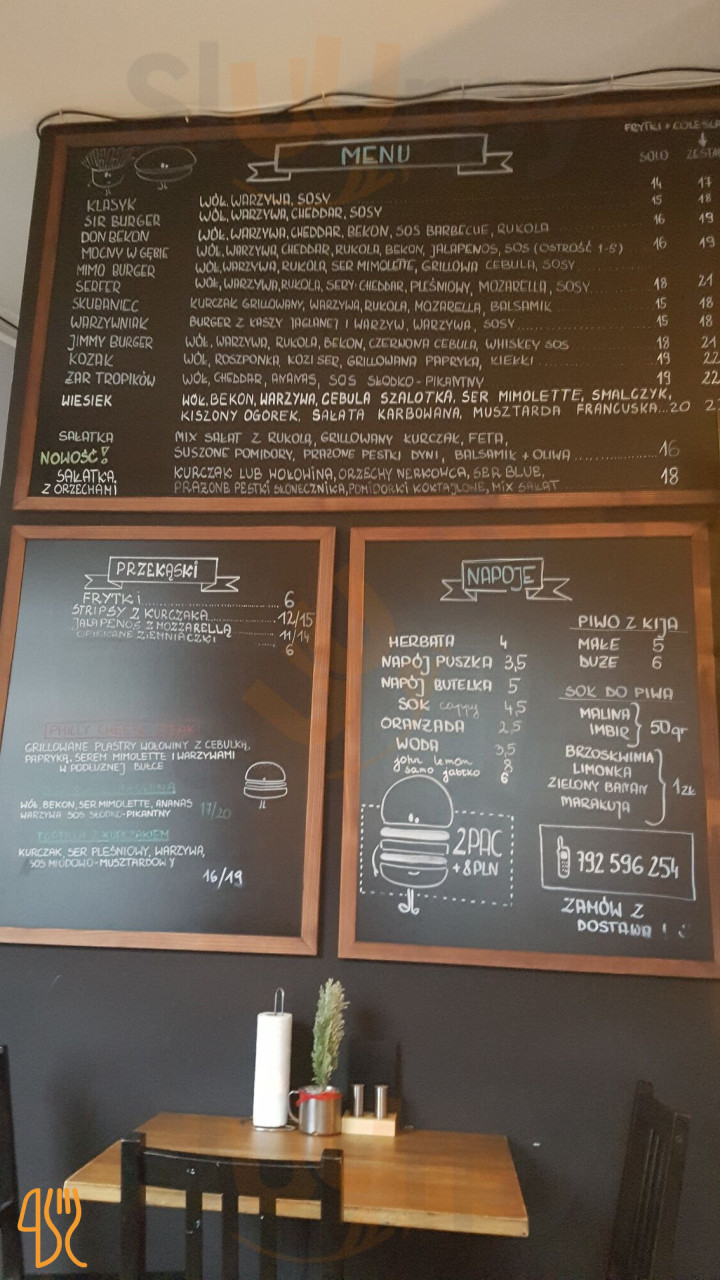 FRYTKI + COLESŁA
MENU
SOLO ZESTA
KLASYK WÓŁ, WARZYWA, SOSY 14 17
SIR BURGER WÓŁ, WARZYWA, CHEDDAR, SOSY 15 18
DON BEKON WÓŁ, WARZYWA, CHEDDAR, BEKON, SOS BARBECUE, RUKOLA 16 19
MOCNY W GĘBIE WÓŁ, WARZYWA, CHEDDAR, RUKOLA, BEKON, JALAPENOS, SOS (OSTROŚĆ 1-5) 16 19
MIMO BURGER WÓŁ, WARZYWA, RUKOLA, SER MIMOLETTE, GRILLOWA CEBULA, SOSY
SERFER WÓŁ, WARZYWA, RUKOLA, SERY: CHEDDAR, PLEŚNIOWY, MOZARELLA, SOSY 18 21
SKUBANIEC KURCZAK GRILLOWANY, WARZYWA, RUKOLA, MOZARELLA, BALSAMIK 15 18
WARZYWNIAK BURGER Z KASZY JAGLANEJ I WARZYW, WARZYWA, SOSY 15 18
JIMMY BURGER WÓŁ, WARZYWA, RUKOLA, BEKON, CZERWONA CEBULA, WHISKEY SOS 18 21
KOZAK WÓŁ, ROSZPONKA KOZI SER, GRILLOWANA PAPRYKA, KIEŁKI 19 22
ŻAR TROPIKÓW WÓŁ, CHEDDAR, ANANAS, SOS SŁODKO-PIKANTNY 19 22
WIESIEK WÓŁ, BEKON, WARZYWA, CEBULA SZALOTKA, SER MIMOLETTE, SMALCZYK,
KISZONY OGÓREK, SAŁATA KARBOWANA, MUSZTARDA FRANCUSKA...20 2
SAŁATKA MIX SAŁAT Z RUKOLĄ, GRILLOWANY KURCZAK, FETA,
NOWOŚĆ! SUSZONE POMIDORY, PRAŻONE PESTKI DYNI, BALSAMIK + OLIWA 16
SAŁATKA KURCZAK LUB WOŁOWINA, ORZECHY NERKOWCA, SER BLUE, 18
Z ORZECHAMI PRAŻONE PESTKI SŁONECZNIKA, POMIDORKI KOKTAJLOWE, MIX SAŁAT
PRZEKĄSKI
FRYTKI 6
STRIPSY Z KURCZAKA 12/15
JALAPENOS Z MOZZARELLĄ 11/14
OPIEKANE ZIEMNIACZKI 6
PHILLY CHEESE STEAK
GRILLOWANE PLASTRY WOŁOWINY Z CEBULKĄ,
PAPRYKĄ, SEREM MIMOLETTE I WARZYWAMI
W PODŁUŻNEJ BUŁCE
WÓŁ, BEKON, SER MIMOLETTE, ANANAS
WARZYWA SOS SŁODKO-PIKANTNY 17/20
TORTILLA Z KURCZAKIEM
KURCZAK, SER PLEŚNIOWY, WARZYWA,
SOS MIODOWO-MUSZTARDOWY
16/19
NAPOJE
HERBATA 4
NAPÓJ PUSZKA 3,5
NAPÓJ BUTELKA 5
SOK cappy 4,5
ORANŻADA 2,5
WODA 3,5
john lemon 8
samo jabłko 6
2PAC
+8PLN
PIWO Z KIJA
MAŁE 5
DUŻE 6
SOK DO PIWA
MALINA
IMBIR 50gr
BRZOSKWINIA
LIMONKA
ZIELONY BANAN 1zł
MARAKUJA
792 596 254
ZAMÓW Z
DOSTAWĄ!